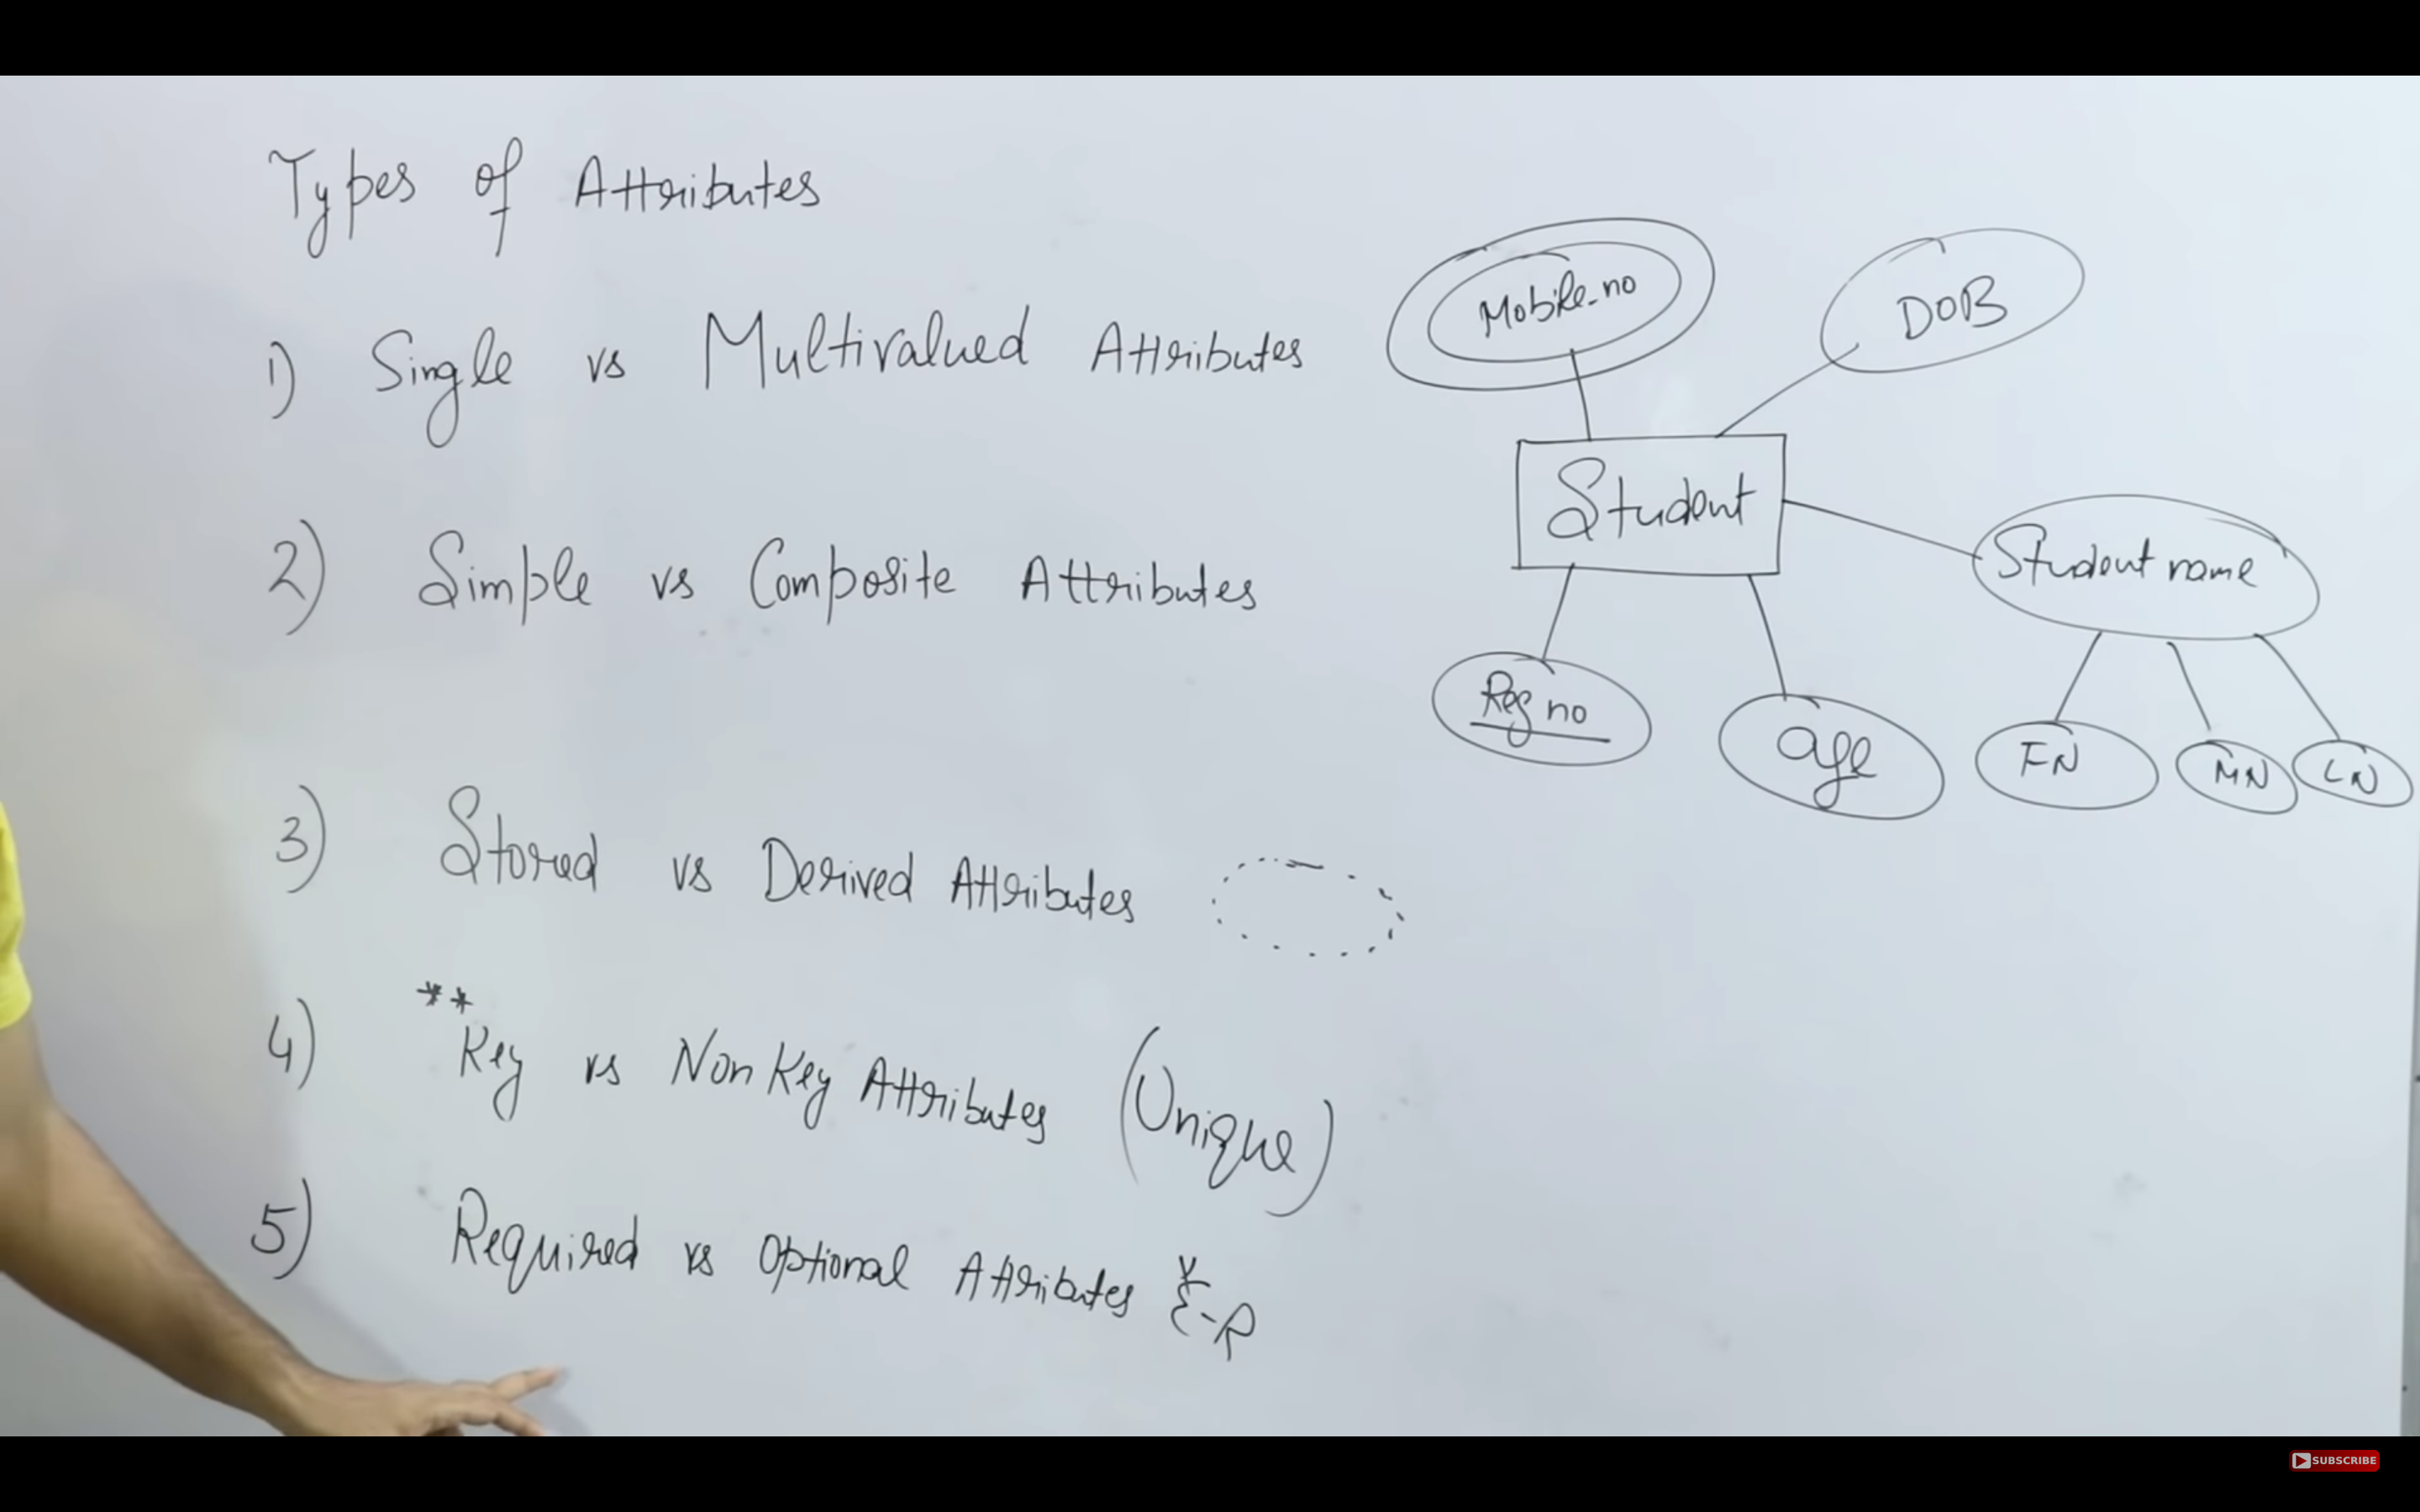 Types of Attributes
1) Single vs Multivalued Attributes
2) Simple vs Composite Attributes
3) Stored vs Derived Attributes
4) **Key vs Non Key Attributes (Unique)
5) Required vs Optional Attributes E-R
Mobile-no
DOB
Student
Student name
Reg no
age
FN
MN
LN
SUBSCRIBE